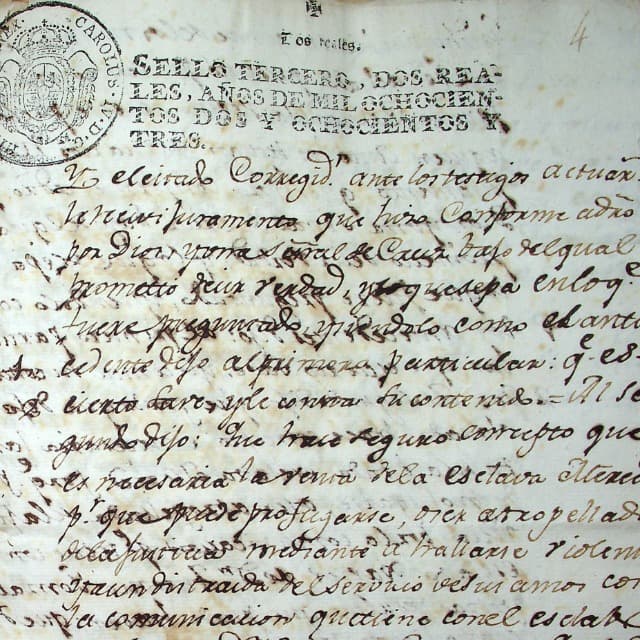 4
Dos reales.
CAROLUS IV D
SELLO TERCERO, DOS REA-
LES, AÑOS DE MIL OCHOCIEN-
TOS DOS Y OCHOCIENTOS Y
TRES.
Yo el citado Corregid.r ante los testigos actuar.s
le recivi Juramento que hizo conforme a dro
por Dios y una señal de Cruz bajo del qual
prometio decir verdad, y que sepa en lo q.e
fuere preguntado, y siendolo como el ante
cedente dijo al primero particular: q.e es
cierto y le consta su contenido.= Al se
gundo dijo: Que hace seguro concepto que
es necesaria la venta de la esclava
p.r que puede profugarse, o ser atropellada
de la Justicia mediante a hallarse violen
y aun distraida del servicio de su amos con
la comunicacion que tiene con el esclabo